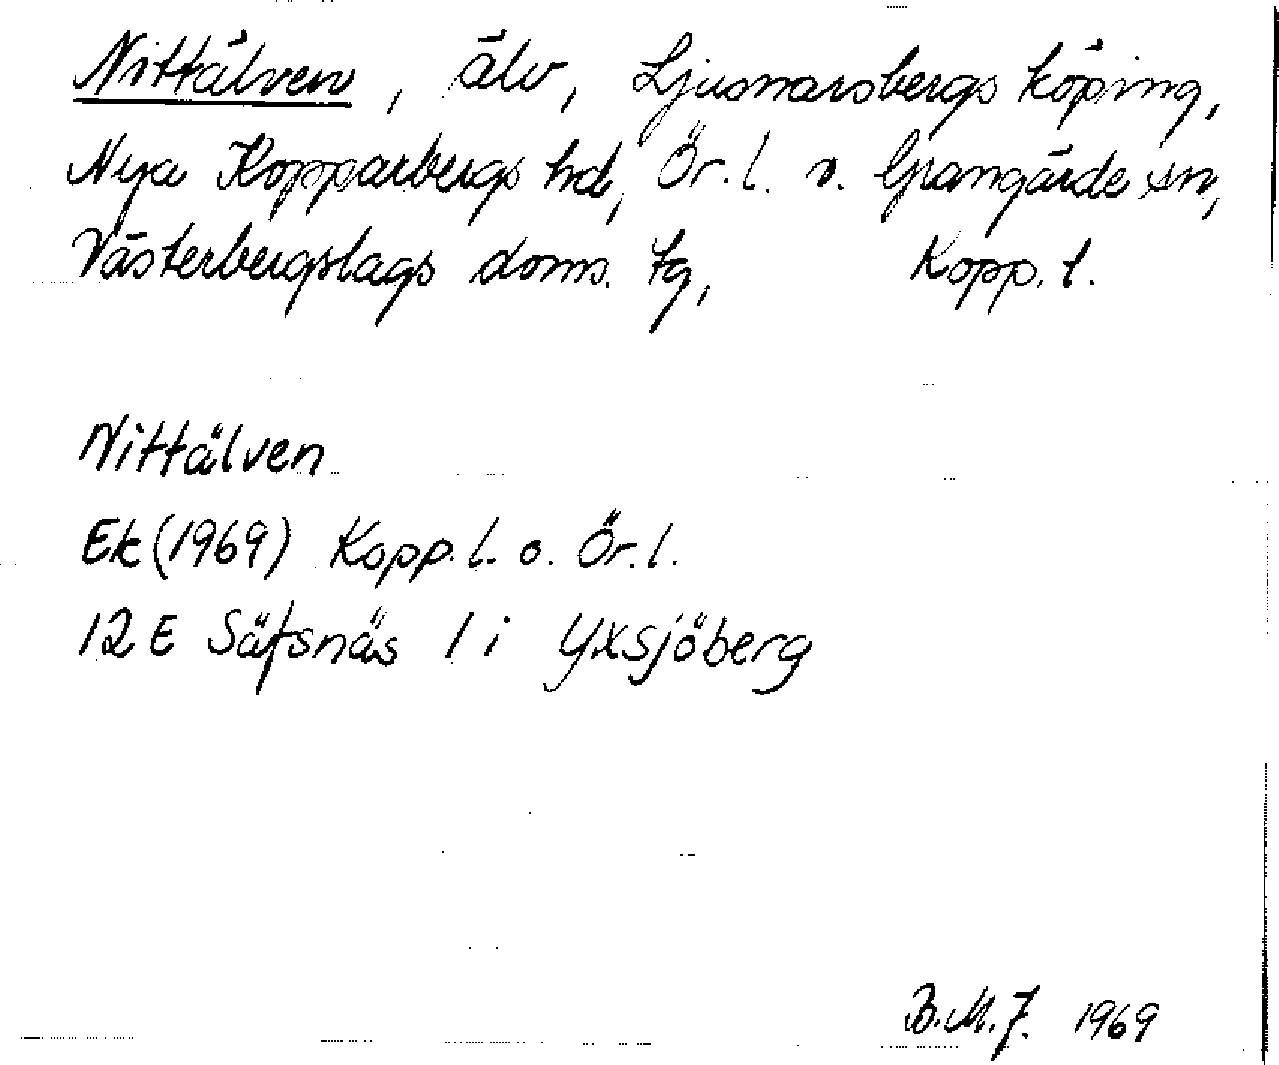 Nittälven, älv, Ljusnarsbergs köping,
Nya Kopparbergs hd, Ör. l. o. Grangärde sn,
Västerbergslags doms. tg, Kopp. l.
Nittälven
Ek (1969) Kopp. l. o. Ör. l.
12 E Säfsnäs 1 i Yxsjöberg
B.M.J. 1969